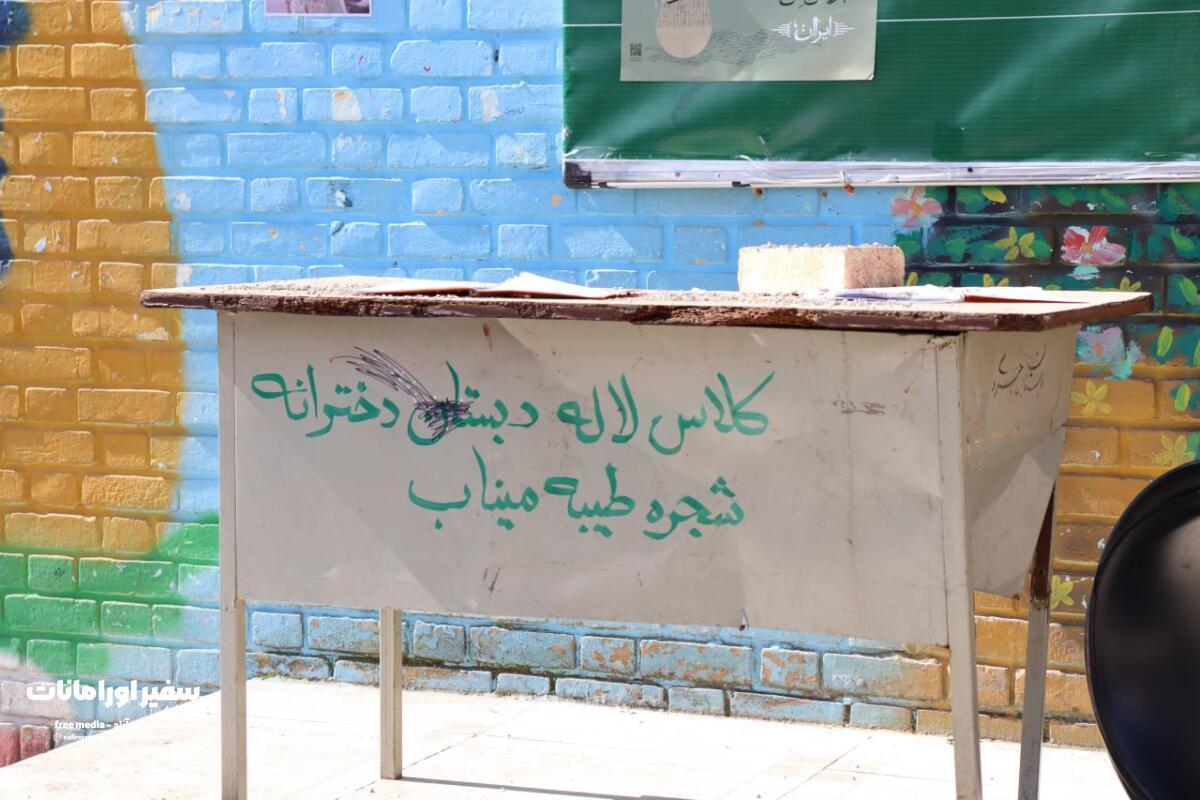 ایران
کلاس لاله دبستان دخترانه
شجره طیبه میناب
سفیر اورامانات
free media - آزاد